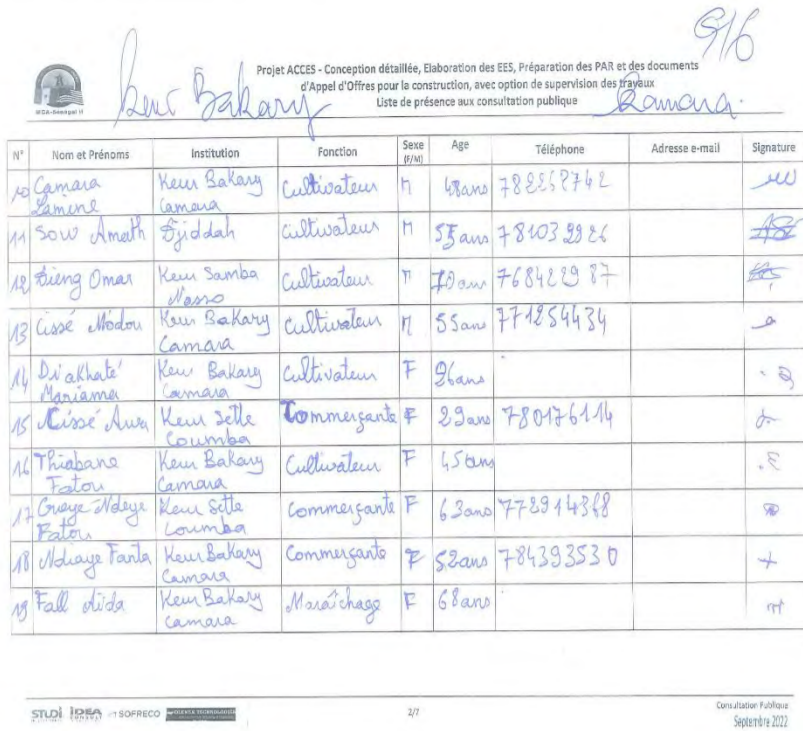 9/6
MCA-Sénégal II
Projet ACCES - Conception détaillée, Elaboration des EES, Préparation des PAR et des documents
d'Appel d'Offres pour la construction, avec option de supervision des travaux
Liste de présence aux consultation publique
Keur Bakary Camara.
N° Nom et Prénoms Institution Fonction Sexe (F/M) Age Téléphone Adresse e-mail Signature
10 Camara Lamine Keur Bakary Camara Cultivateur M 48ans
11 Sow Amath Djiddah Cultivateur M 55ans 781032926
12 Dieng Omar Keur Samba Nasso Cultivateur M 70ans 768422987
13 Cissé Modou Keur Bakary Camara Cultivateur M 55ans 771254434
14 Diakhaté Mariama Keur Bakary Camara Cultivateur F 26ans
15 Cissé Awa Keur Sette Coumba Commerçante F 29ans 780176114
16 Thiabane Fatou Keur Bakary Camara Cultivateur F 45ans
17 Gueye Ndeye Fatou Keur Sette Coumba Commerçante F 63ans 772914368
18 Ndiaye Fanta Keur Bakary Camara Commerçante F 52ans 784393530
19 Fall Aïda Keur Bakary Camara Maraîchage F 68ans
STUDI IDEA CONSULT SOFRECO
2/7
Consultation Publique
Septembre 2022